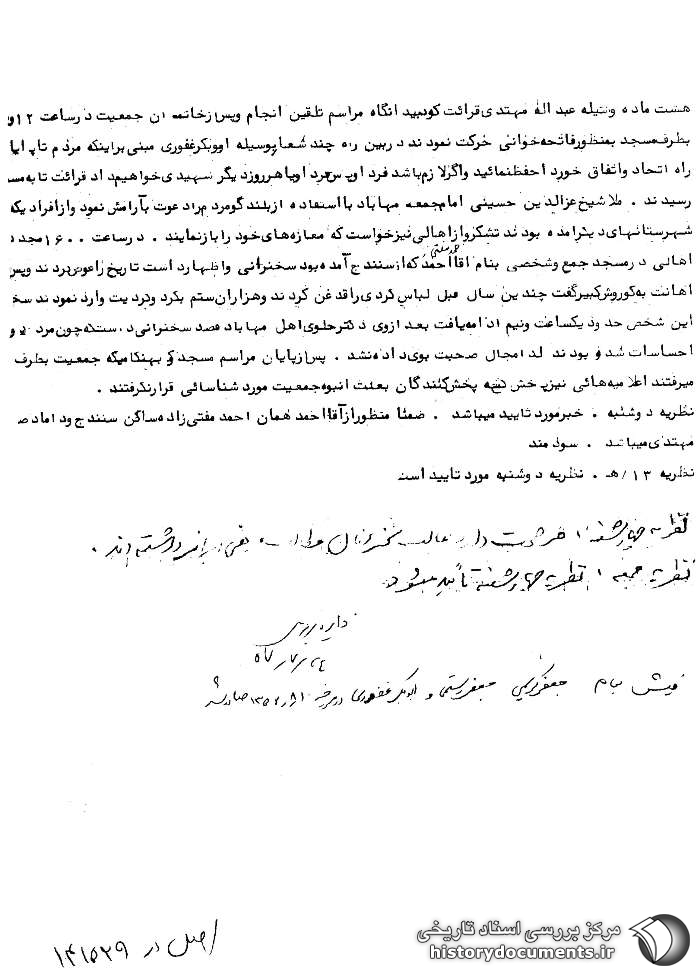 هشت ماده وسیله عبداله مهتدی قرائت گردید آنگاه مراسم تلقین انجام و پس از خاتمه آن جمعیت در ساعت ۱۲
بطرف مسجد بمنظور فاتحه خوانی حرکت نمودند در بین راه چند شعار بوسیله ابوبکر غفوری مبنی براینکه مردم تا پ
راه اتحاد و اتفاق خود را حفظ نمائید و اگر لازم باشد فردا و پس فردا و یا هر روز دیگر شهیدی خواهیم داد قرائت تا به مس
رسیدند . ملا شیخ عزالدین حسینی امام جمعه مهاباد با استفاده از بلندگو مردم را دعوت بآرامش نمود و از افرادیکه
شهرستانهای دیگر آمده بودند تشکر و از اهالی نیز خواست که مغازه های خود را باز نمایند . در ساعت ۱۶۰۰ مجدد
اهالی در مسجد جمع و شخصی بنام آقا احمد که از سنندج آمده بود سخنرانی و اظهار داشت تاریخ را عوض کردند و پس
اهانت به کوروش کبیر گفت چندین سال قبل لباس کردی را قدغن کردند و هزاران ستم بکرد و کردیت وارد نمودند سخ
این شخص حدود یکساعت ونیم ادامه یافت بعد از وی دکتر حلوی اهل مهاباد قصد سخنرانی داشته که چون مردم
احساسات شده بودند لذا مجال صحبت بوی داده نشد . پس از پایان مراسم مسجد و بهنگامیکه جمعیت بطرف
میرفتند اعلامیه هائی نیز پخش که پخش کنندگان بعلت انبوه جمعیت مورد شناسائی قرار نگرفتند .
نظریه دوشنبه . خبر مورد تایید میباشد . ضمنا منظور از آقا احمد همان احمد مفتی زاده ساکن سنندج و داماد
مهتدی میباشد . سودمند
نظریه ۱۳/هـ . نظریه دوشنبه مورد تایید است
نظریه چهارشنبه :
نظریه جمعه : نظریه چهارشنبه تأیید میشود
فیش بنام جعفر کریمی جعفر رستمی و ابوبکر غفوری در مورخه صادر شد
اصل در ۱۴۱۵۲۹
مرکز بررسی اسناد تاریخی
historydocuments.ir